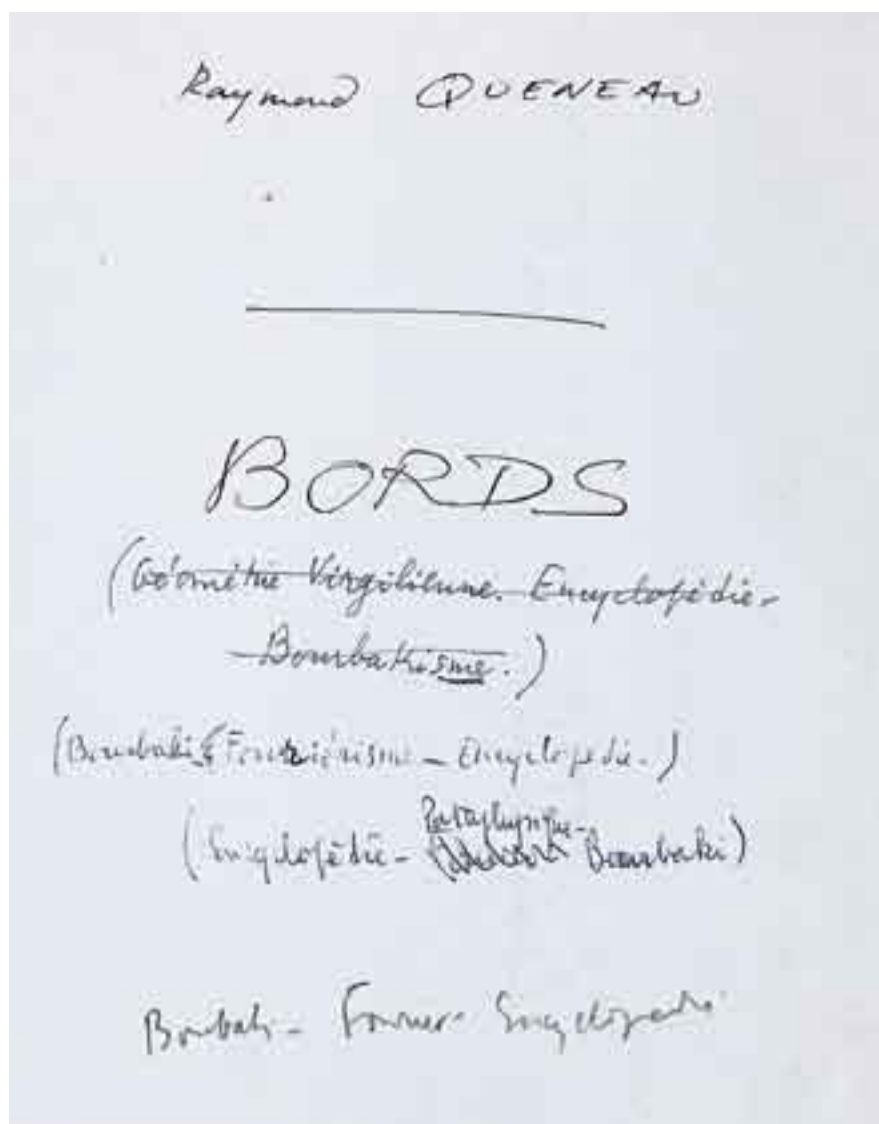 Raymond QUENEAU
BORDS
(Géométrie Virgilienne. Encyclopédie-
-Bourbakisme.)
(Bourbaki Fouriérisme - Encyclopédie-)
Pataphysique-
(Encyclopédie- Bourbaki)
Bourbaki - Fourier - Encyclopédie